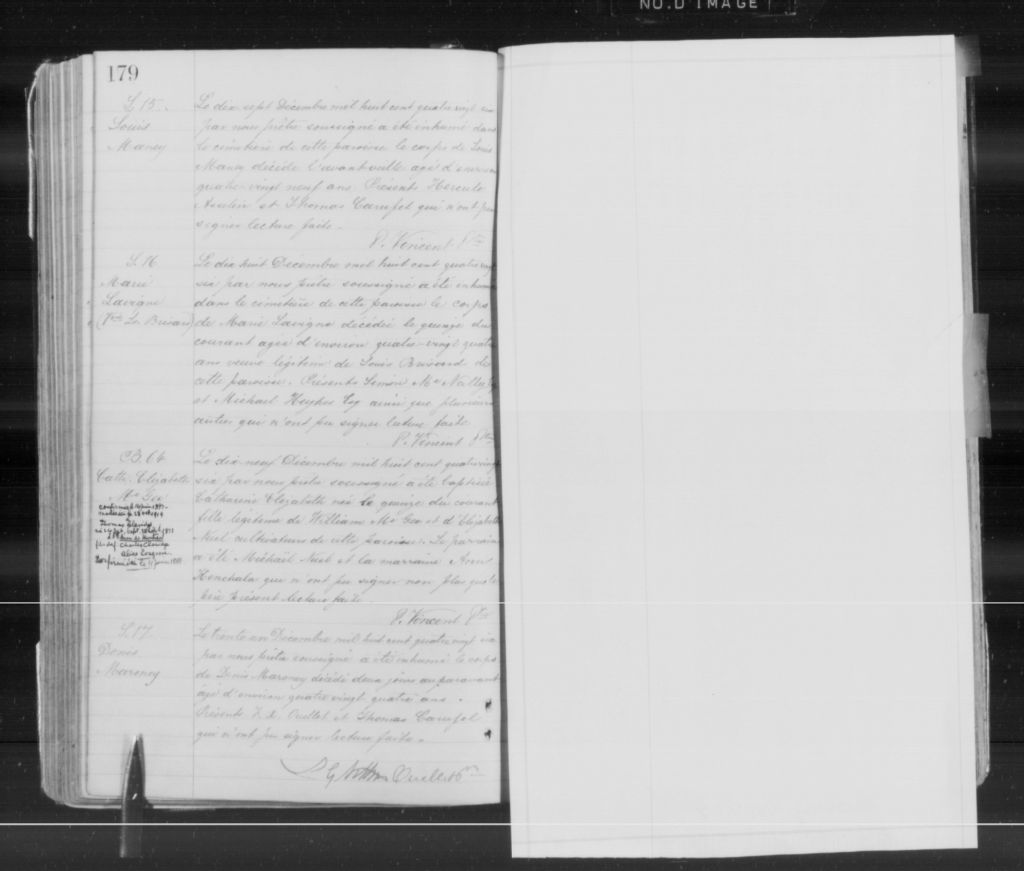 NO.D IMAGE
179
S. 15.
Louis
Maney
Le dix sept Décembre mil huit cent quatre vingt six
par nous prêtre soussigné a été inhumé dans
le cimetière de cette paroisse le corps de Louis
Maney décédé l'avant veille agé d'environ
quatre-vingt neuf ans. Présents Hercule
Asselin et Thomas Carufel qui n'ont pu
signer lecture faite.
P. Vincent Ptre
S. 16
Marie
Lavigne
(Vve Ls Brisard)
Le dix huit Décembre mil huit cent quatre vingt
six par nous prêtre soussigné a été inhumé
dans le cimetière de cette paroisse le corps
de Marie Lavigne décédée le quinze du
courant agée d'environ quatre-vingt quatre
ans veuve légitime de Louis Brisard de
cette paroisse. Présents Simon Mc Nally
et Michael Hughes Esq ainsi que plusieurs
autres qui n'ont pu signer lecture faite
P. Vincent Ptre
B. 64
Cath. Elizabeth
Mc Gee
Le dix neuf Décembre mil huit cent quatre vingt
six par nous prêtre soussigné a été baptisée
Catharine Elizabeth née le quinze du courant
fille légitime de William Mc Gee et d'Elizabeth
Niel cultivateurs de cette paroisse. Le parrain
a été Michael Niel et la marraine Ann
Henchala qui n'ont pu signer non plus que le
père présent lecture faite.
P. Vincent Ptre
S. 17.
Denis
Maroney
Le trente un Décembre mil huit cent quatre vingt six
par nous prêtre soussigné a été inhumé le corps
de Denis Maroney décédé deux jours auparavant
âgé d'environ quatre vingt quatre ans.
Présents Ouellet et Thomas Carufel
qui n'ont pu signer lecture faite.
Ouellet